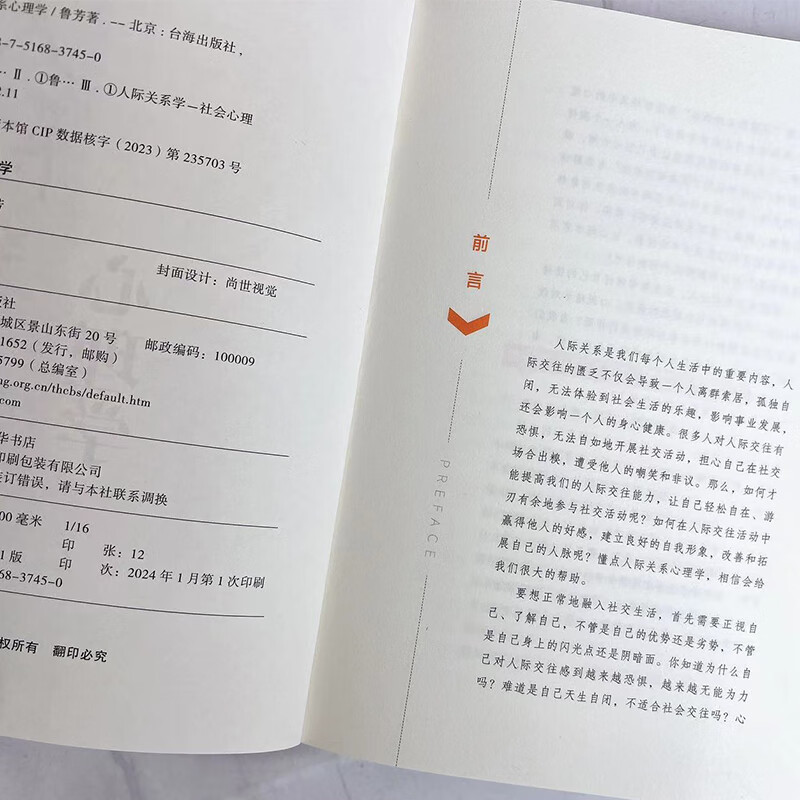 系心理学 / 鲁芳著 . -- 北京 : 台海出版社 ,
-7-5168-3745-0
… Ⅱ . ①鲁… Ⅲ . ①人际关系学－社会心理
.11
本馆 CIP 数据核字（2023）第 235703 号
学
封面设计：尚世视觉
版社
城区景山东街 20 号 邮政编码：100009
1652（发行，邮购）
5799（总编室）
ng.org.cn/thcbs/default.htm
.com
华书店
印刷包装有限公司
装订错误，请与本社联系调换
00 毫米 1/16
印 张：12
1 版 印 次：2024 年 1 月第 1 次印刷
68-3745-0
权所有 翻印必究
前言
PREFACE
人际关系是我们每个人生活中的重要内容，人
际交往的匮乏不仅会导致一个人离群索居，孤独自
闭，无法体验到社会生活的乐趣，影响事业发展，
还会影响一个人的身心健康。很多人对人际交往有
恐惧，无法自如地开展社交活动，担心自己在社交
场合出糗，遭受他人的嘲笑和非议。那么，如何才
能提高我们的人际交往能力，让自己轻松自在、游
刃有余地参与社交活动呢？如何在人际交往活动中
赢得他人的好感，建立良好的自我形象，改善和拓
展自己的人脉呢？懂点人际关系心理学，相信会给
我们很大的帮助。
要想正常地融入社交生活，首先需要正视自
己、了解自己，不管是自己的优势还是劣势，不管
是自己身上的闪光点还是阴暗面。你知道为什么自
己对人际交往感到越来越恐惧，越来越无能为力
吗？难道是自己天生自闭，不适合社会交往吗？心